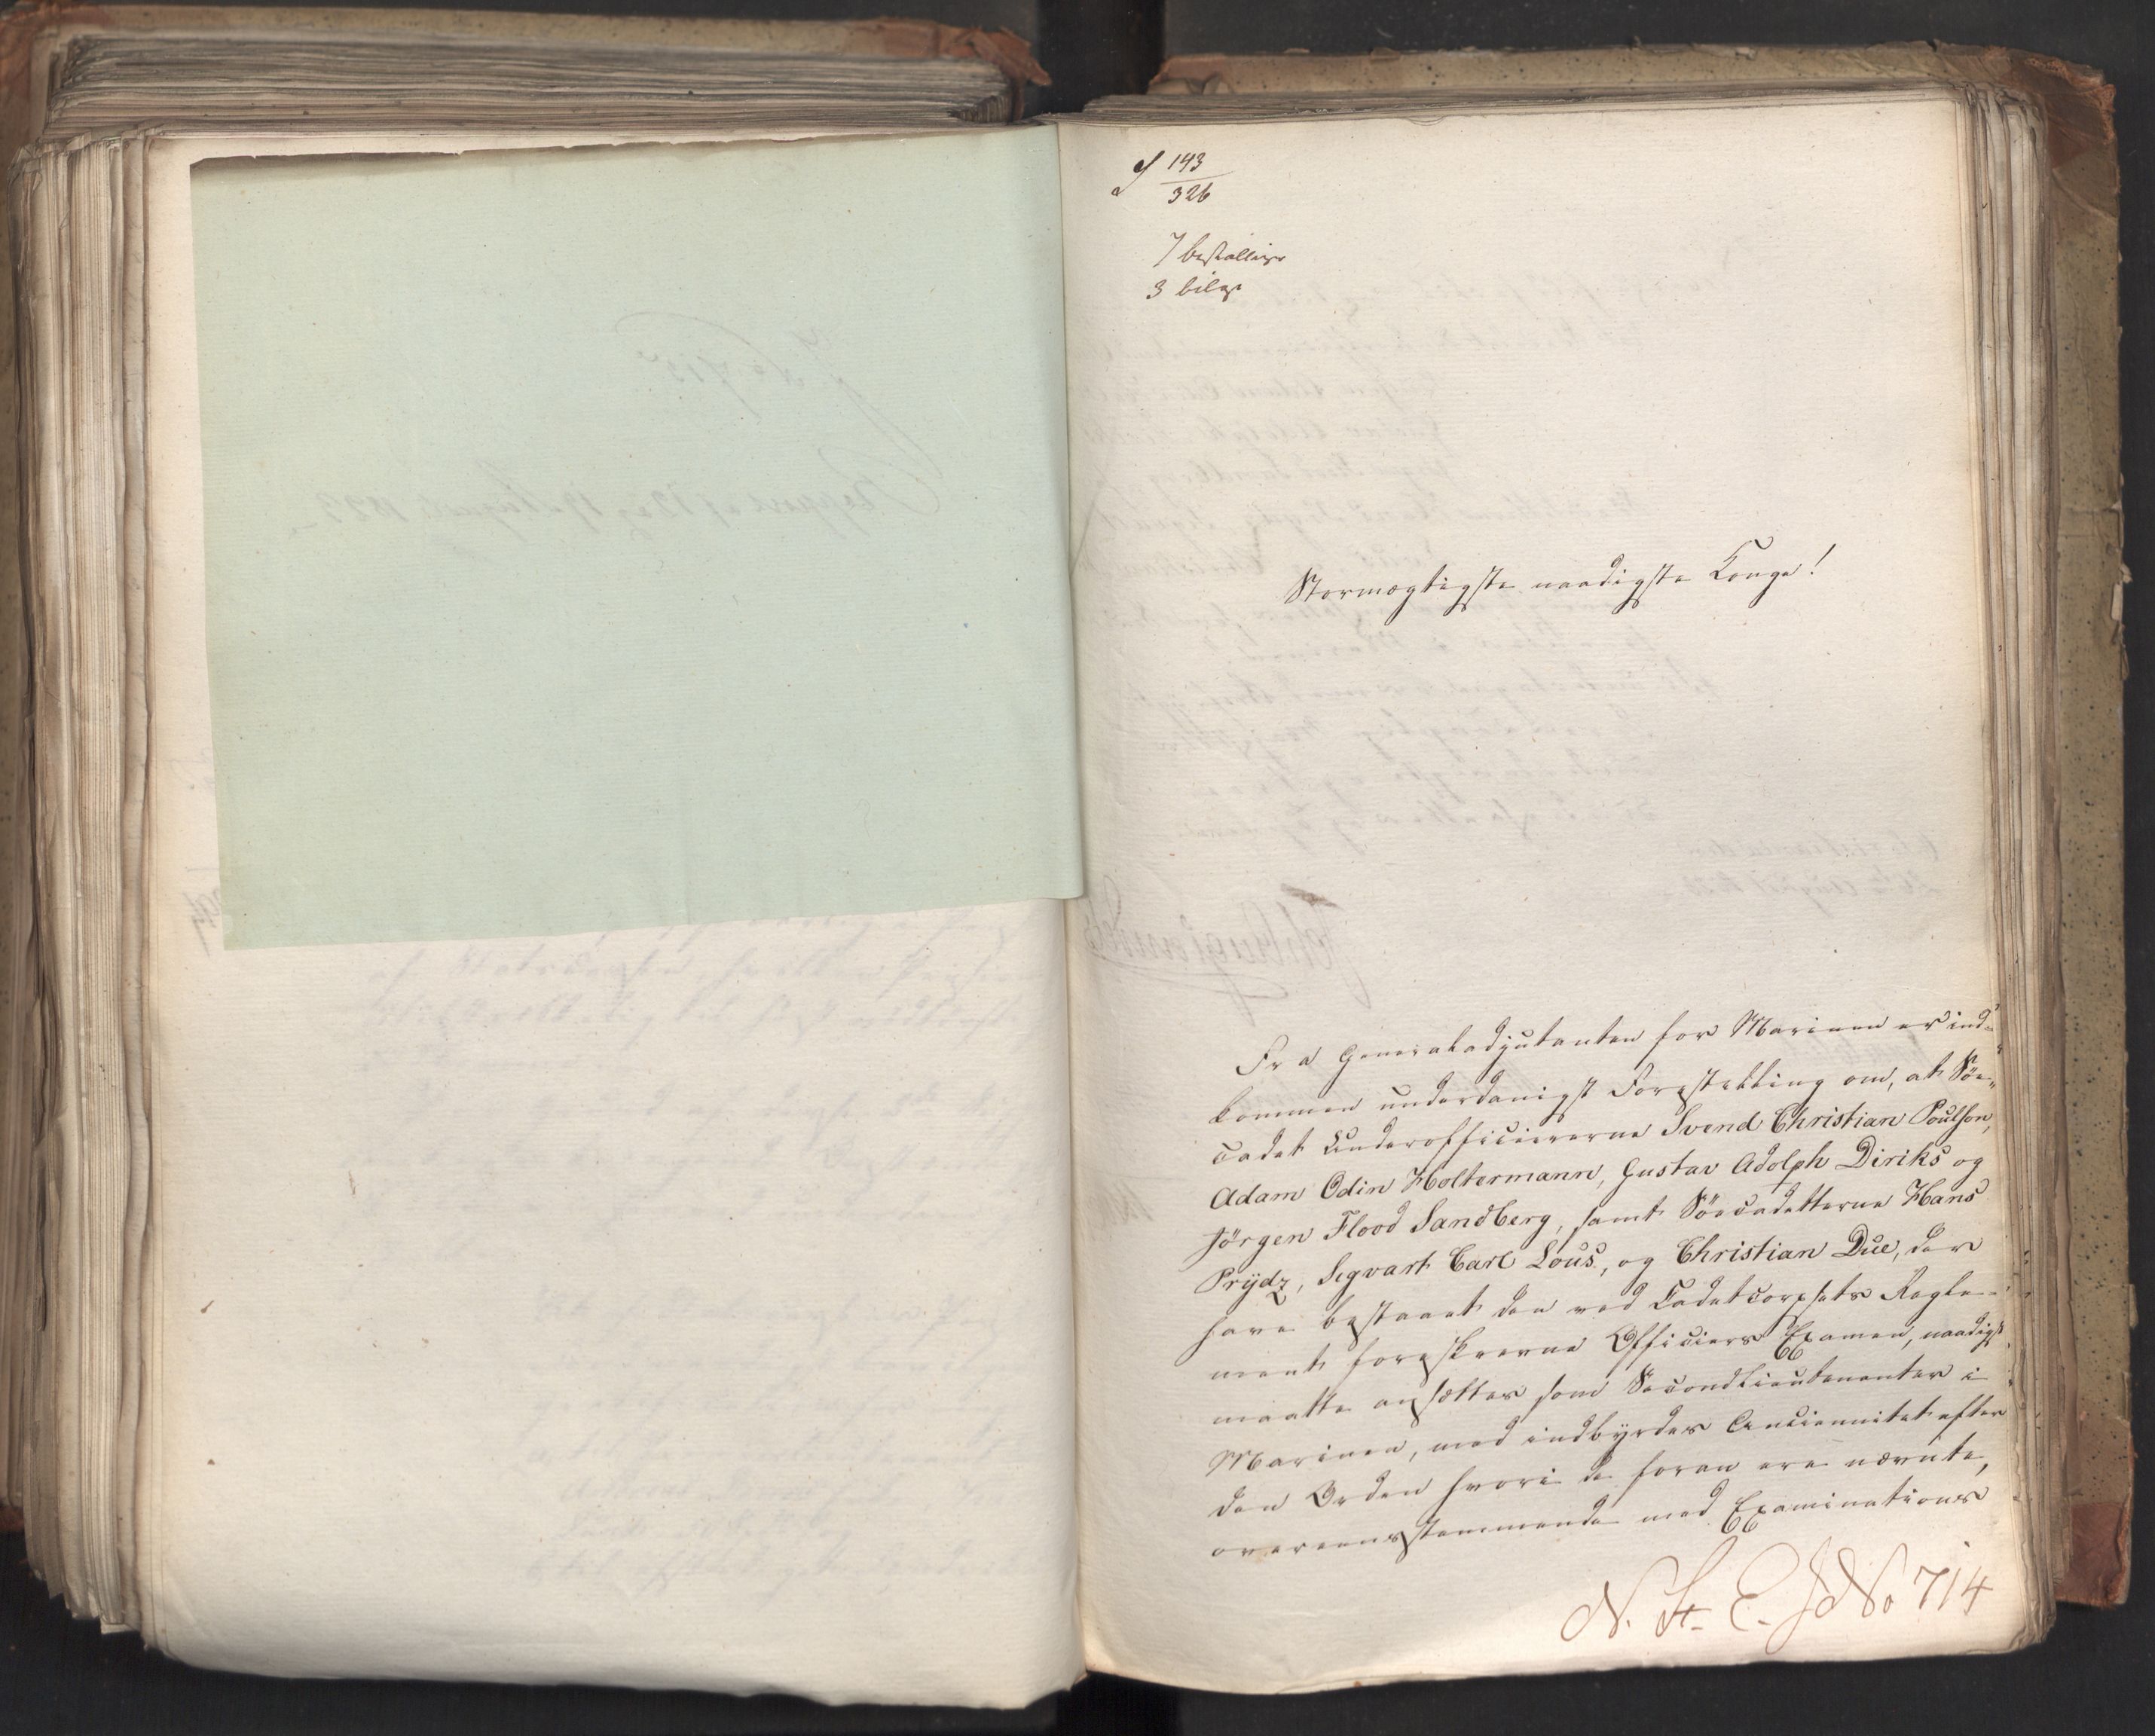 143
326
7 bestallinger
3 bilag
Stormægtigste naadigste Konge!
Fra Generaladjutanten for Marinen er ind-
kommen underdanigst Forestilling om, at Söe-
cadet Underofficiererne Svend Christian Poulson,
Adam Odin Holtermann, Gustav Adolph Diriks og
Jörgen Flood Sandberg, samt Söecadetterne Hans
Prydz, Segvart Carl Lous, og Christian Due, der
have bestaaet den ved Cadetcorpsets Regle-
ment foreskrevne Officiers Examen, naadigst
maatte ansættes som Secondlieutenanter i
Marinen, med indbyrdes Anciennitet efter
den Orden hvori de foran ere nævnte,
overeensstemmende med Examinations
N. St. E. Jd No 714